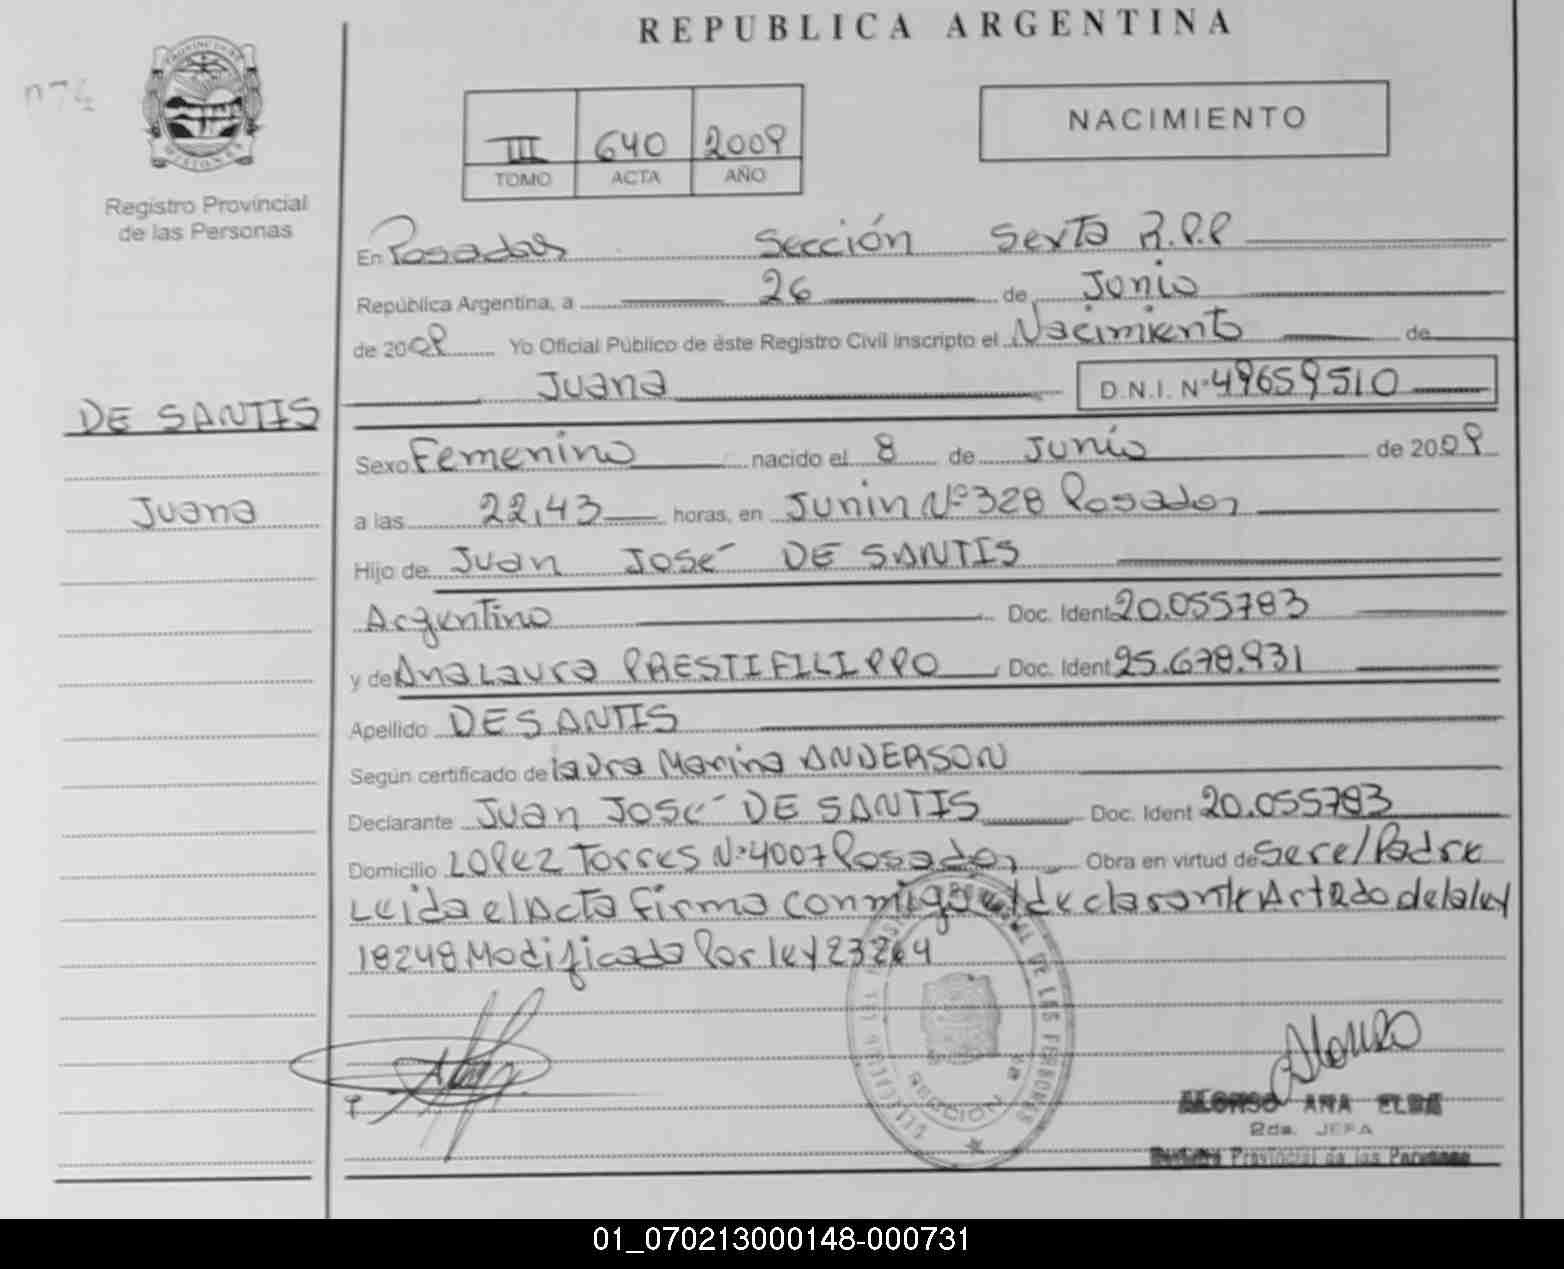 REPUBLICA ARGENTINA
074
PROVINCIA DE
MISIONES
Registro Provincial
de las Personas
III 640 2009
TOMO ACTA AÑO
NACIMIENTO
En Posadas Sección Sexta R.P.P
República Argentina, a 26 de Junio
de 2009 Yo Oficial Público de éste Registro Civil inscripto el Nacimiento de
Juana D.N.I. Nº 49659510
DE SANTIS
Juana
Sexo Femenino nacido el 8 de Junio de 2009
a las 22,43 horas, en Junin Nº 328 Posadas
Hijo de Juan José DE SANTIS
Argentino Doc. Ident 20.055783
y de Ana Laura PRESTIFILIPPO Doc. Ident 25.678.931
Apellido DE SANTIS
Según certificado de laura Marina ANDERSON
Declarante Juan José DE SANTIS Doc. Ident 20.055783
Domicilio LOPEZ Torres Nº 4007 Posadas Obra en virtud de Sere/Padre
Leida el Acta firma conmigo el declarante Art 2do de la ley
18248 Modificada Por ley 23264
SECCION 6ª
Alonso
ALONSO ANA ELBA
2da. JEFA
Registro Provincial de las Personas
01_070213000148-000731